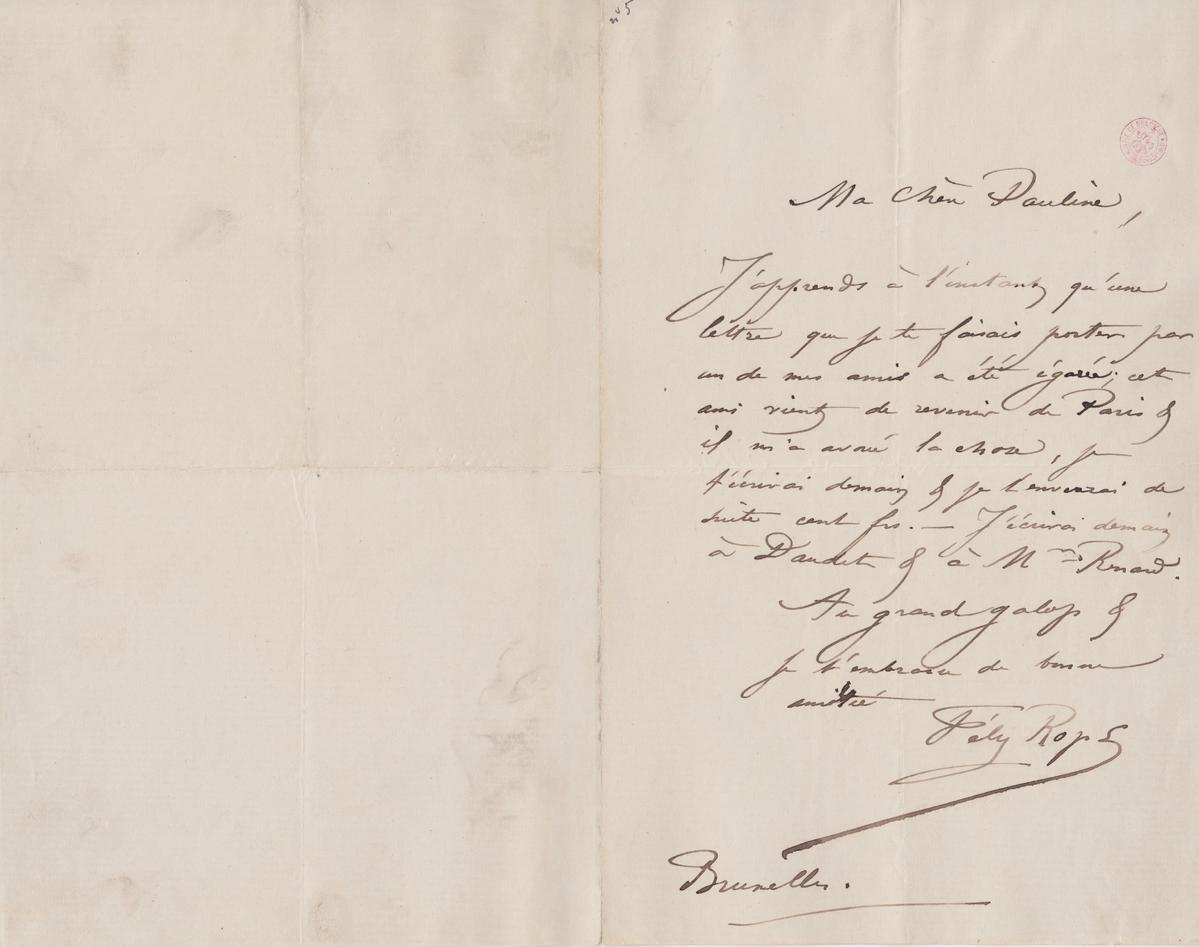 n° 5
Ma chère Pauline,
J'apprends à l'instant qu'une
lettre que je te faisais porter par
un de mes amis a été égarée ; cet
ami vient de revenir de Paris &
il m'a avoué la chose, je
t'écrirai demain & je t'enverrai de
suite cent frs. — J'écrirai demain
à Daudet & à Mme Renard.
Au grand galop &
je t'embrasse de bonne
amitié
Fély Rops
Bruxelles.